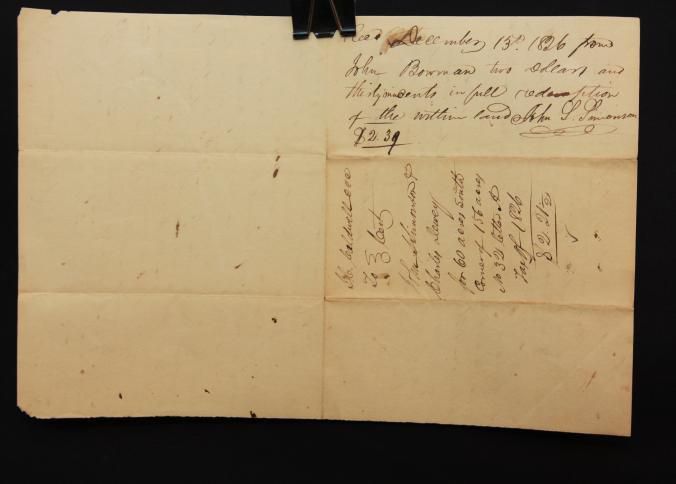 Recd December 15th 1826 from
John Bowman two dollars and
thirty nine cents in full redemption
of the within land John S. Simonson
$2.39
H. Caldwell
To Cert
John Simonson &
Charles Dewey
for 60 acres South
Corner of 156 acres
No 32 letter A
Tax of 1826
$2.21½